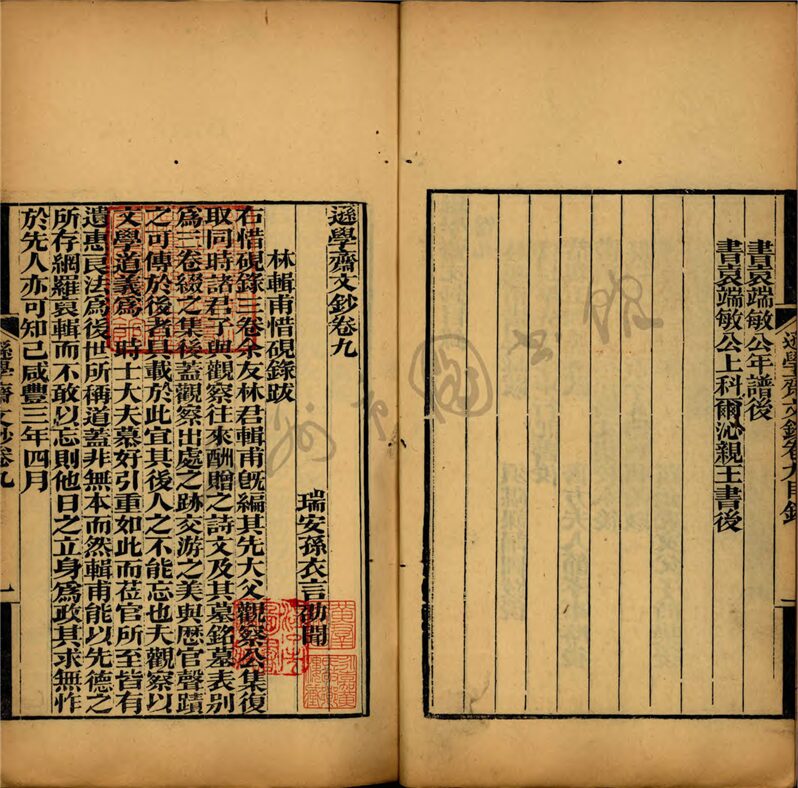 書袁端敏公年譜後
書袁端敏公上科爾沁親王書後
遜學齋文鈔卷九目錄
遜學齋文鈔卷九
瑞安孫衣言劭聞
林輯甫惜硯錄跋
右惜硯錄三卷余友林君輯甫旣編其先大父觀察公集復
取同時諸君子與觀察往來酬贈之詩文及其墓銘墓表別
爲三卷綴之集後蓋觀察出處之跡交游之美與歷官聲蹟
之可傳於後者具載於此宜其後人之不能忘也夫觀察以
文學道義爲一時士大夫慕好引重如此而莅官所至皆有
遺惠良法爲後世所稱道蓋非無本而然輯甫能以先德之
所存網羅裒輯而不敢以忘則他日之立身爲政其求無怍
於先人亦可知已咸豐三年四月
遜學齋文鈔卷九
一